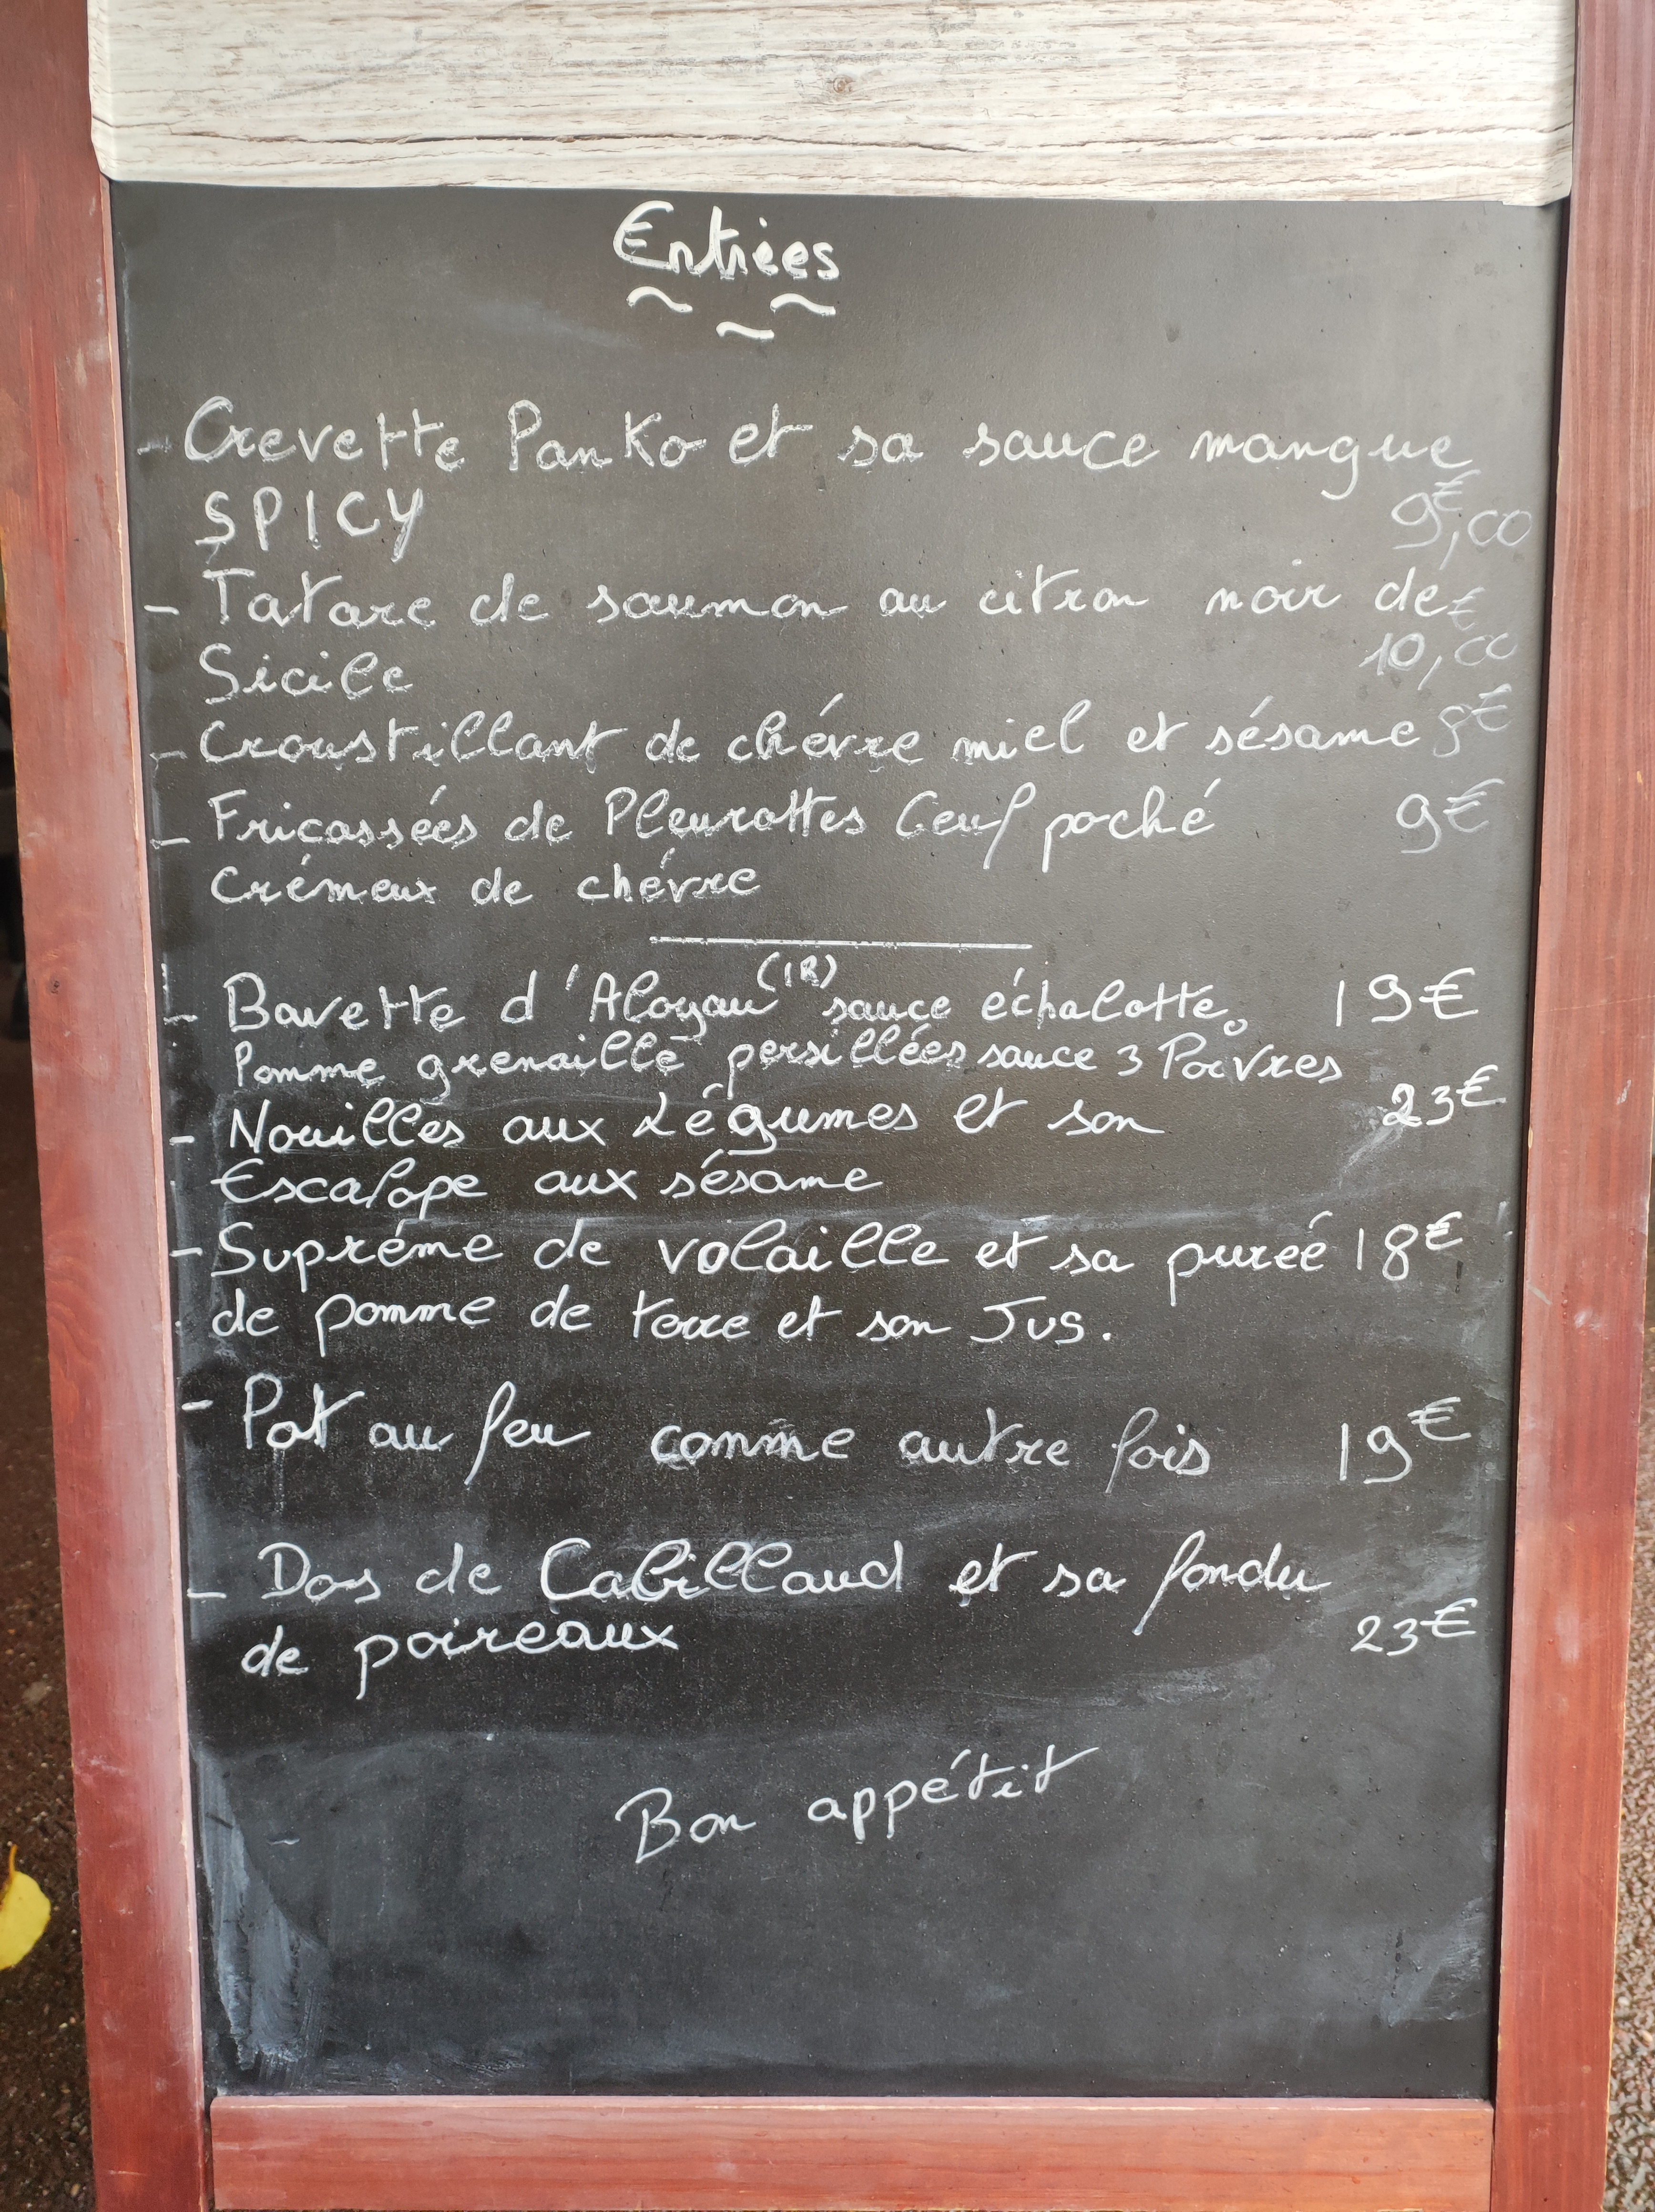 Entrées
- Crevette Panko et sa sauce mangue
SPICY 9€,00
- Tatare de saumon au citron noir de
Sicile 10,00€
- Croustillant de chévre miel et sésame 8€
- Fricassées de Pleurottes Oeuf poché 9€
Crémeux de chévre
- Bavette d'Aloyau (IR) sauce échalotte 19€
Pomme grenaille persillées sauce 3 Poivres
- Nouilles aux Légumes et son 23€
Escalope aux sésame
- Supréme de volaille et sa pureé 18€
de pomme de terre et son Jus.
- Pot au feu comme autre fois 19€
- Dos de Cabillaud et sa fondu
de poireaux 23€
Bon appétit